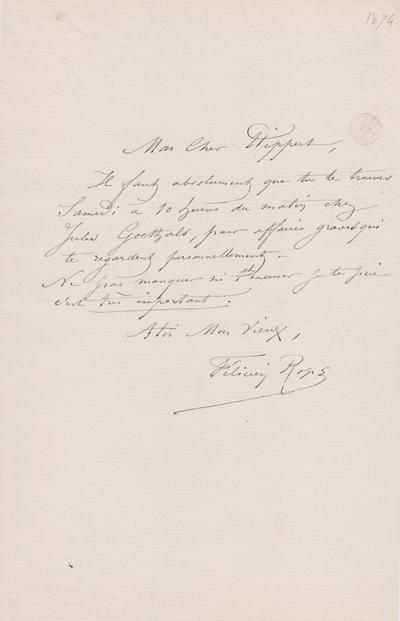 1874
Mon Cher Dippert,
Il faut absolument que tu te trouves
Samedi à 10 heures du matin chez
Jules Goethals, pour affaires graves qui
te regardent personnellement.
Ne pas manquer ni t'excuser je te prie
c'est très important.
A toi Mon Vieux,
Félicien Rops